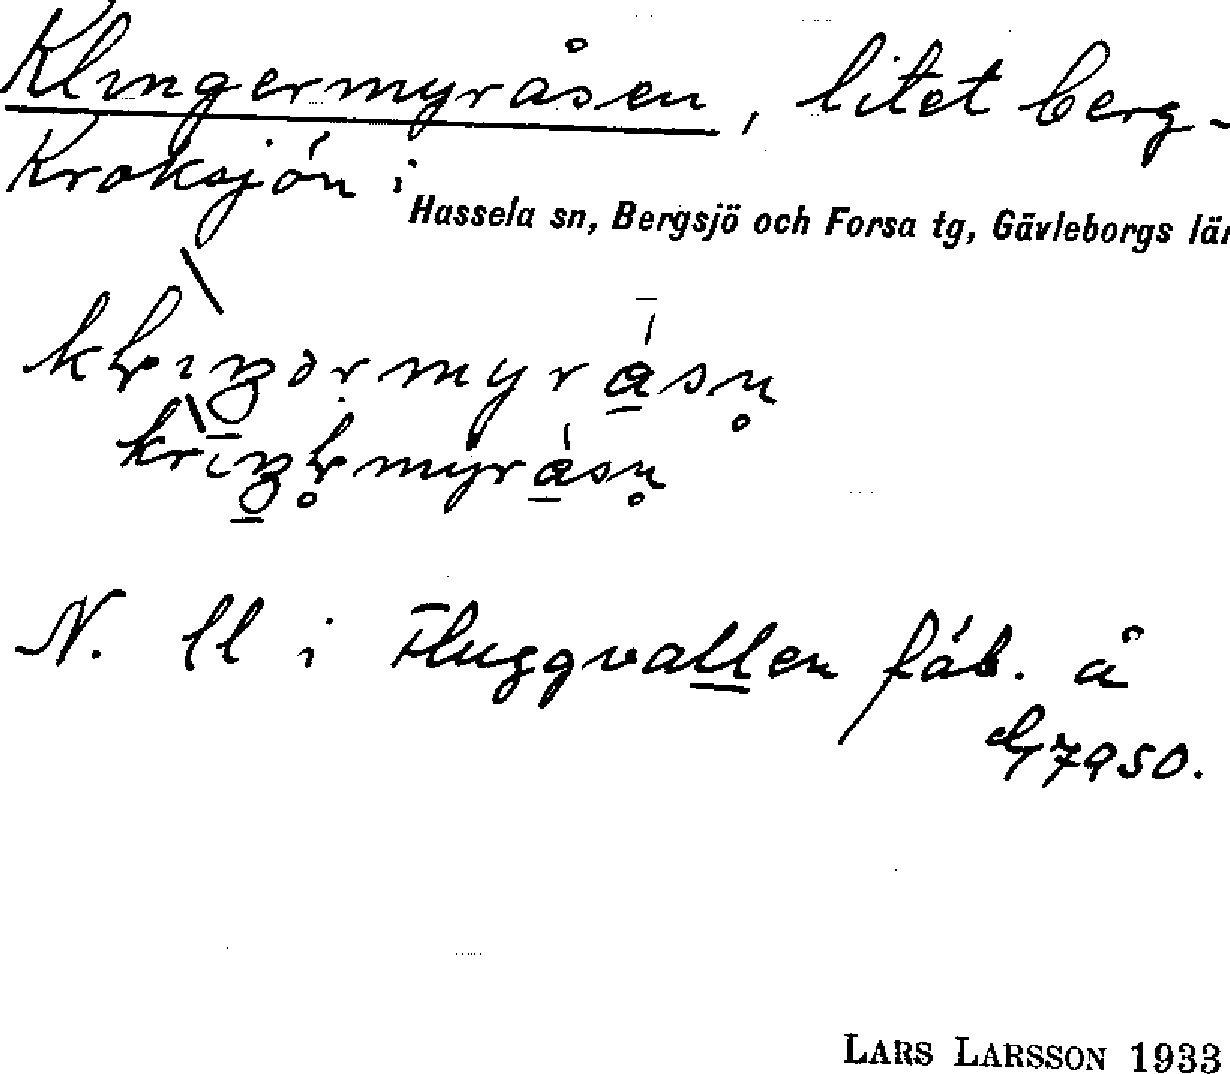 Klingermyråsen, litet berg-
Kroksjön i Hassela sn, Bergsjö och Forsa tg, Gävleborgs län
N. ll i Fluggvallen fäb. å
G7950.
LARS LARSSON 1933